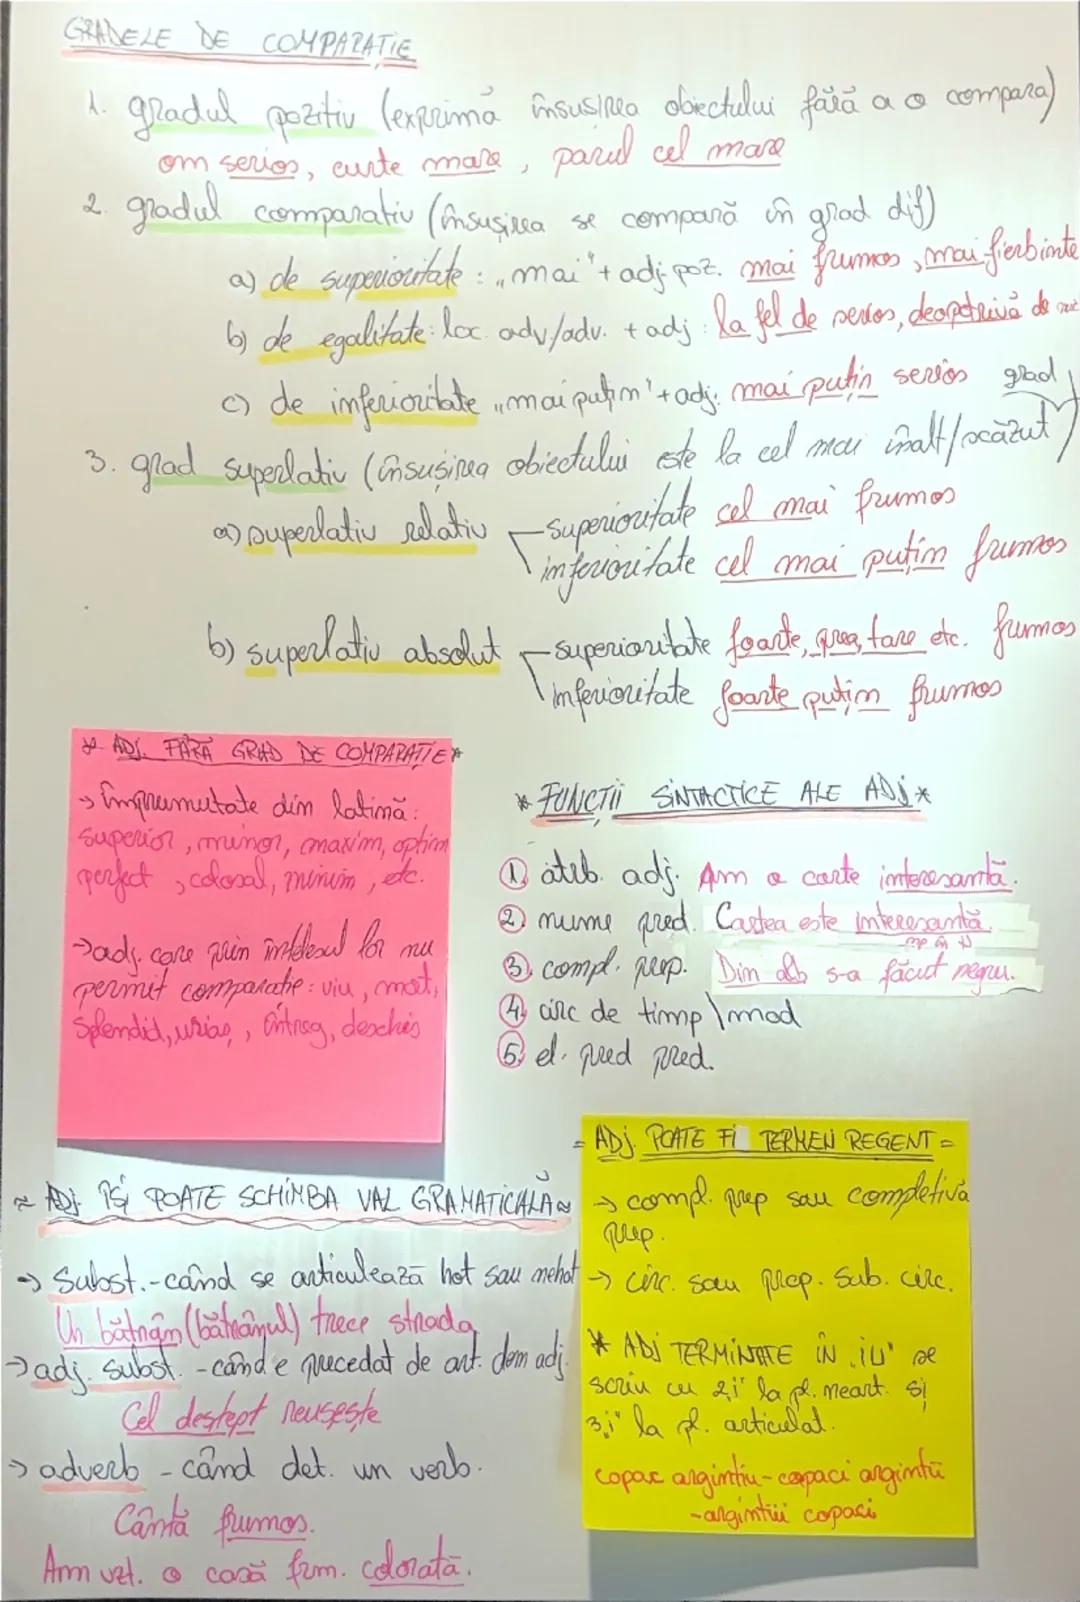 GRADELE DE COMPARAȚIE
1. gradul pozitiv (exprimă însușirea obiectului fără a o compara)
om serios, curte mare, parul cel mare
2. gradul comparativ (însușirea se compară în grad dif)
a) de superioritate: „mai" + adj. poz. mai frumos, mai fierbinte
b) de egalitate: loc. adv/adv. + adj: la fel de serios, deopotrivă de
c) de inferioritate „mai puțin" + adj. mai puțin serios
3. grad superlativ (însușirea obiectului este la cel mai înalt/scăzut grad)
a) superlativ relativ - superioritate cel mai frumos
inferioritate cel mai puțin frumos
b) superlativ absolut - superioritate foarte, prea, tare etc. frumos
inferioritate foarte puțin frumos
* ADJ. FĂRĂ GRAD DE COMPARAȚIE *
→ împrumutate din latină:
superior, minor, maxim, optim
perfect, colosal, minim, etc.
→ adj. care prin înțelesul lor nu
permit comparație: viu, mort,
splendid, uriaș, întreg, deschis
* FUNCȚII SINTACTICE ALE ADJ *
1. atrib. adj. Am o carte interesantă.
2. nume pred. Cartea este interesantă.
3. compl. prep. Din alb s-a făcut negru.
4. circ de timp \ mod
5. el. pred pred.
= ADJ. POATE FI TERMEN REGENT =
→ compl. prep sau completivă
prep.
→ circ. sau prop. sub. circ.
* ADJ TERMINATE ÎN „iu" se
scriu cu 2„i" la pl. neart. și
3„i" la pl. articulat.
copac argintiu - copaci argintii
- argintiii copaci
≈ ADJ. ÎȘI POATE SCHIMBA VAL GRAMATICALĂ ≈
→ Subst. - când se articulează hot sau nehot
Un bătrân (bătrânul) trece strada
→ adj. subst. - când e precedat de art. dem adj.
Cel deștept reușește
→ adverb - când det. un verb.
Cântă frumos.
Am vzt. o casă frm. colorată.